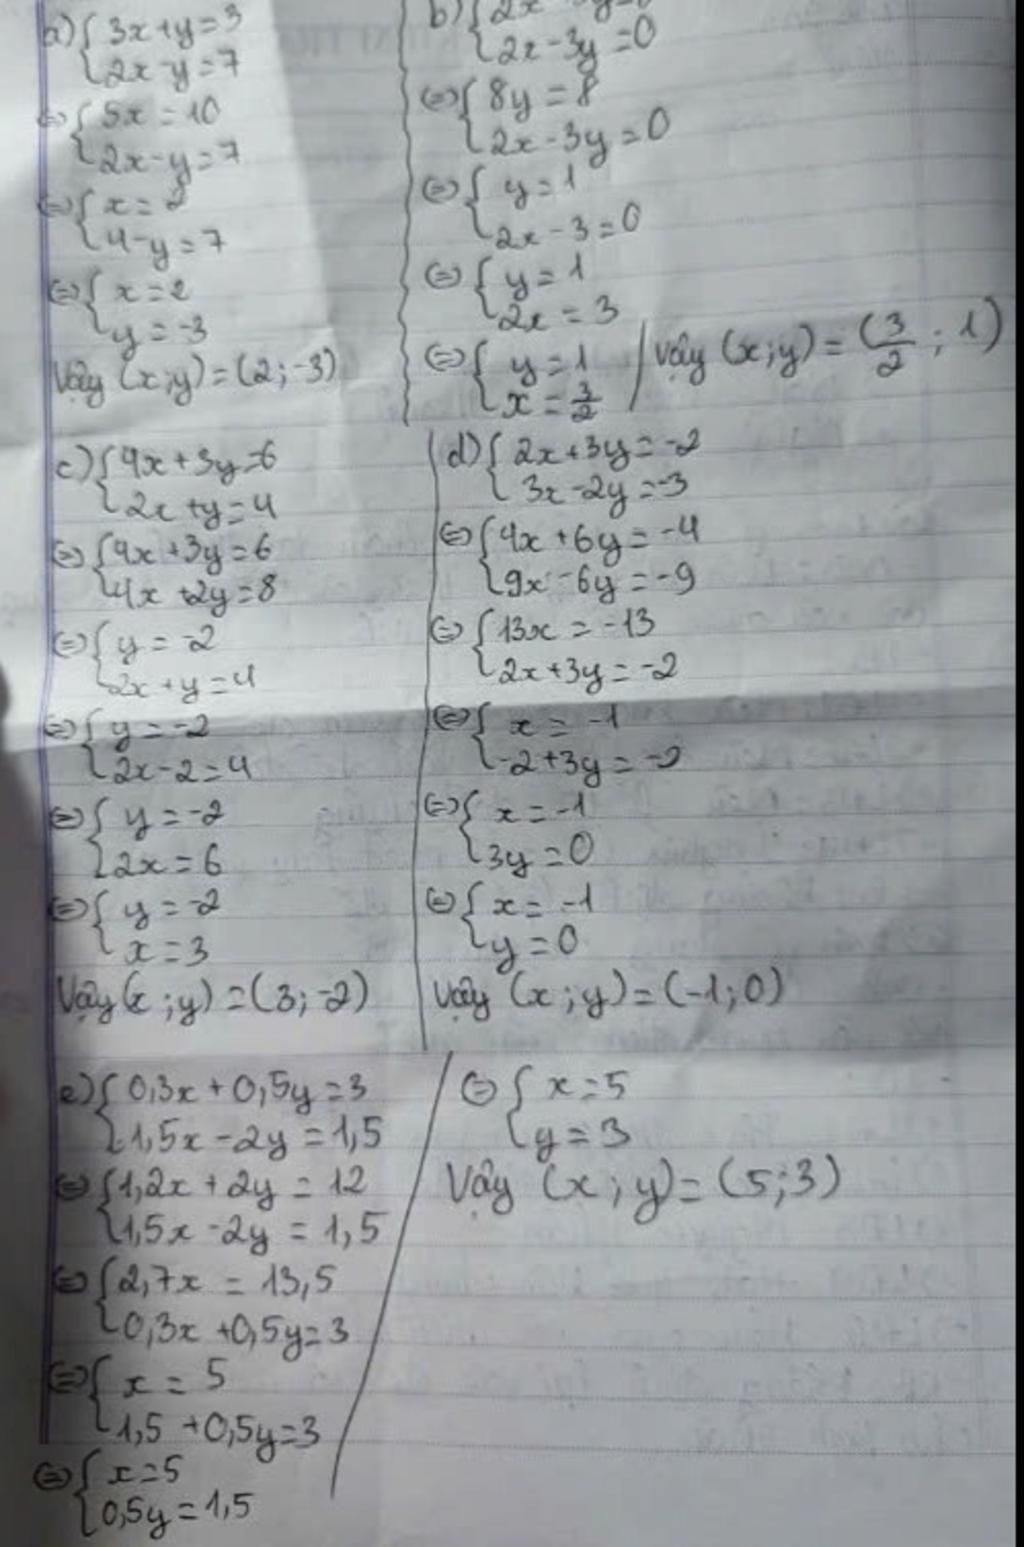 a) { 3x + y = 3
2x - y = 7
⇔ { 5x = 10
2x - y = 7
⇔ { x = 2
4 - y = 7
⇔ { x = 2
y = -3
Vậy (x;y) = (2; -3)
b) { 2x
2x - 3y = 0
⇔ { 8y = 8
2x - 3y = 0
⇔ { y = 1
2x - 3 = 0
⇔ { y = 1
2x = 3
⇔ { y = 1
x = 3/2
Vậy (x;y) = (3/2 ; 1)
c) { 4x + 3y = 6
2x + y = 4
⇔ { 4x + 3y = 6
4x + 2y = 8
⇔ { y = -2
2x + y = 4
⇔ { y = -2
2x - 2 = 4
⇔ { y = -2
2x = 6
⇔ { y = -2
x = 3
Vậy (x ; y) = (3; -2)
d) { 2x + 3y = -2
3x - 2y = -3
⇔ { 4x + 6y = -4
9x - 6y = -9
⇔ { 13x = -13
2x + 3y = -2
⇔ { x = -1
-2 + 3y = -2
⇔ { x = -1
3y = 0
⇔ { x = -1
y = 0
Vậy (x ; y) = (-1; 0)
e) { 0,3x + 0,5y = 3
1,5x - 2y = 1,5
⇔ { 1,2x + 2y = 12
1,5x - 2y = 1,5
⇔ { 2,7x = 13,5
0,3x + 0,5y = 3
⇔ { x = 5
1,5 + 0,5y = 3
⇔ { x = 5
0,5y = 1,5
⇔ { x = 5
y = 3
Vậy (x ; y) = (5; 3)